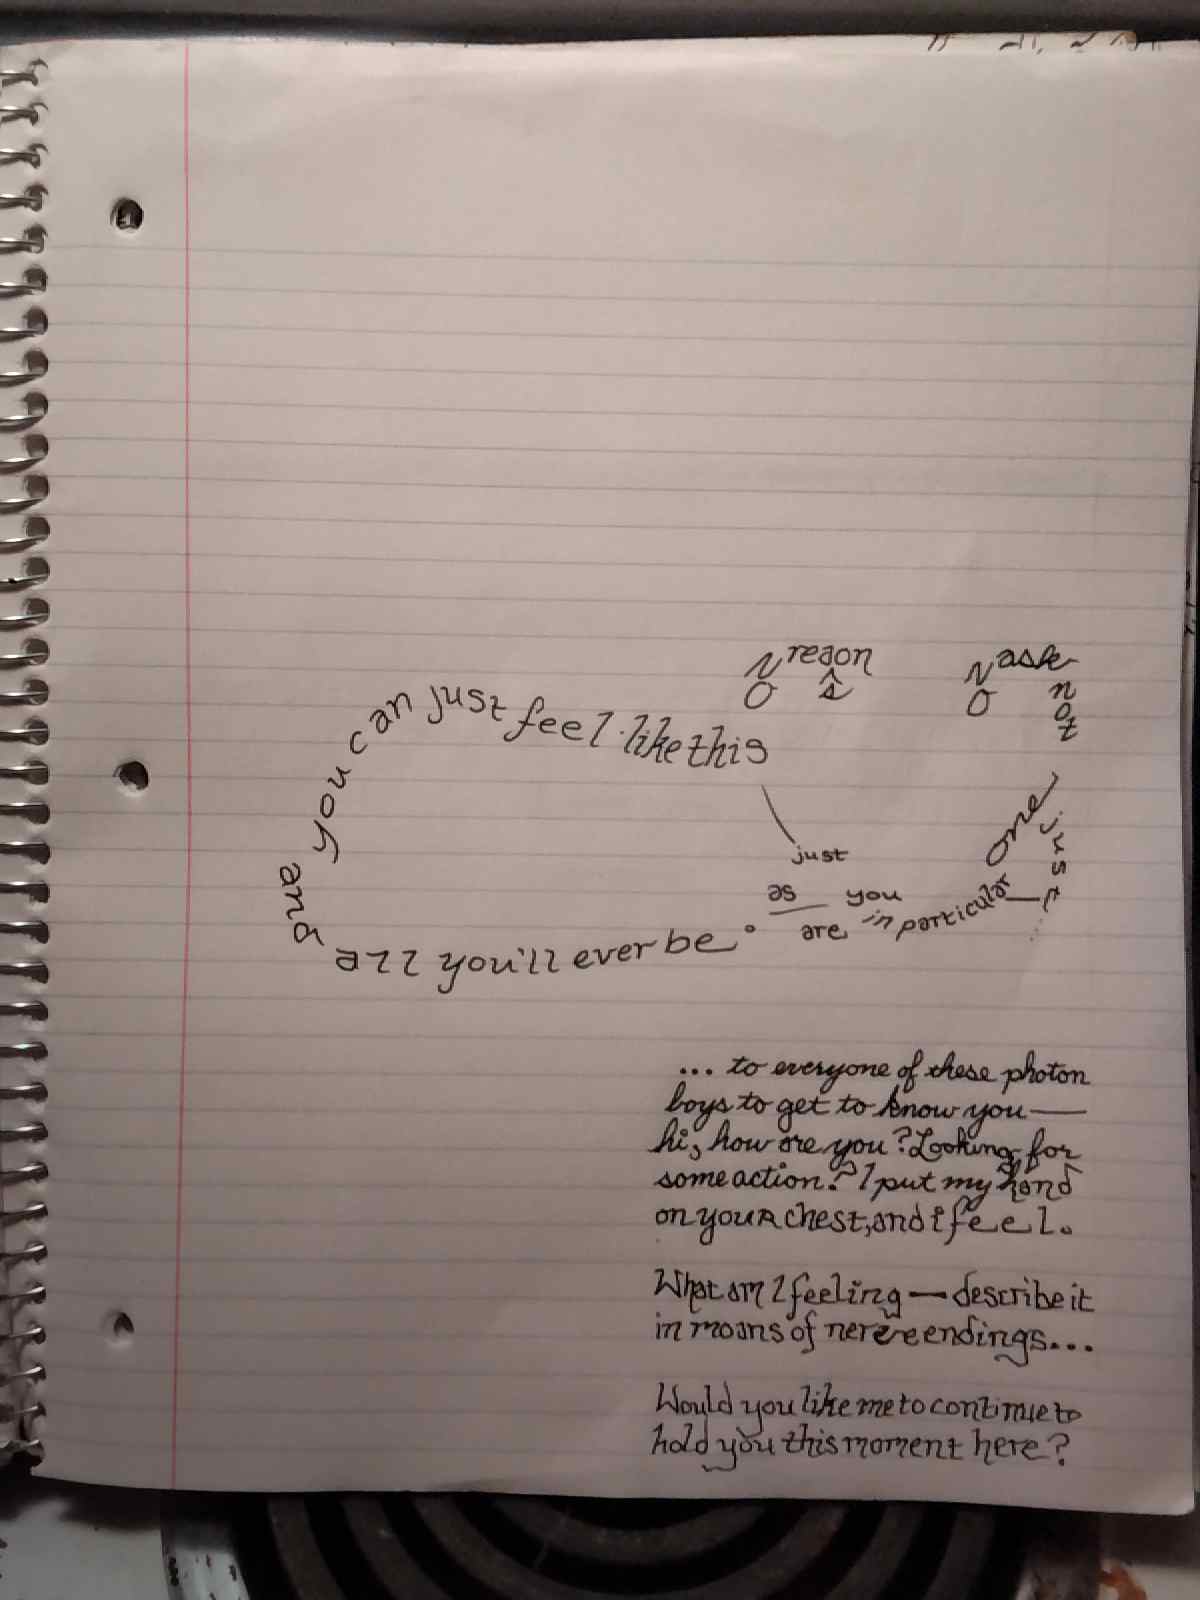 No reason
No ask
not
just
and you can just feel like this
just
as you
are in particular
one
all you'll ever be.
... to everyone of these photon
boys to get to know you—
hi, how are you? Looking for
some action? I put my hand
on your chest, and i feel.
What am I feeling — describe it
in moans of nerve endings...
Would you like me to continue to
hold you this moment here?